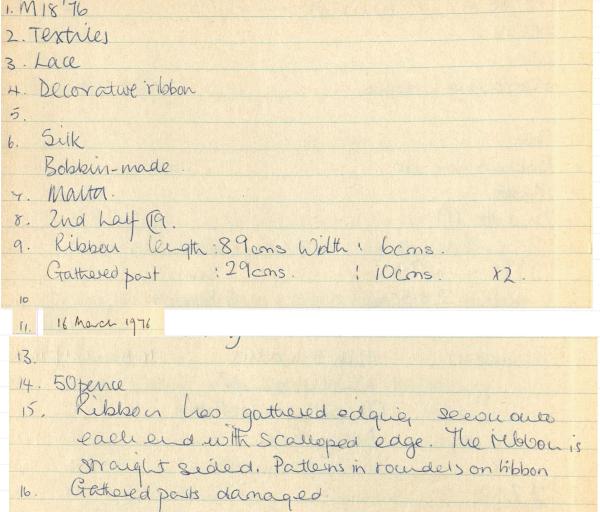 1. M18'76
2. Textiles
3. Lace
4. Decorative ribbon
5.
6. Silk
Bobbin-made
7. Malta.
8. 2nd half C19.
9. Ribbon length : 89cms Width : 6cms.
Gathered part : 29cms. : 10cms. x2.
10
11. 16 March 1976
13.
14. 50pence
15. Ribbon has gathered edging sewn onto
each end with scalloped edge. The ribbon is
straight sided. Patterns in roundels on ribbon
16. Gathered parts damaged